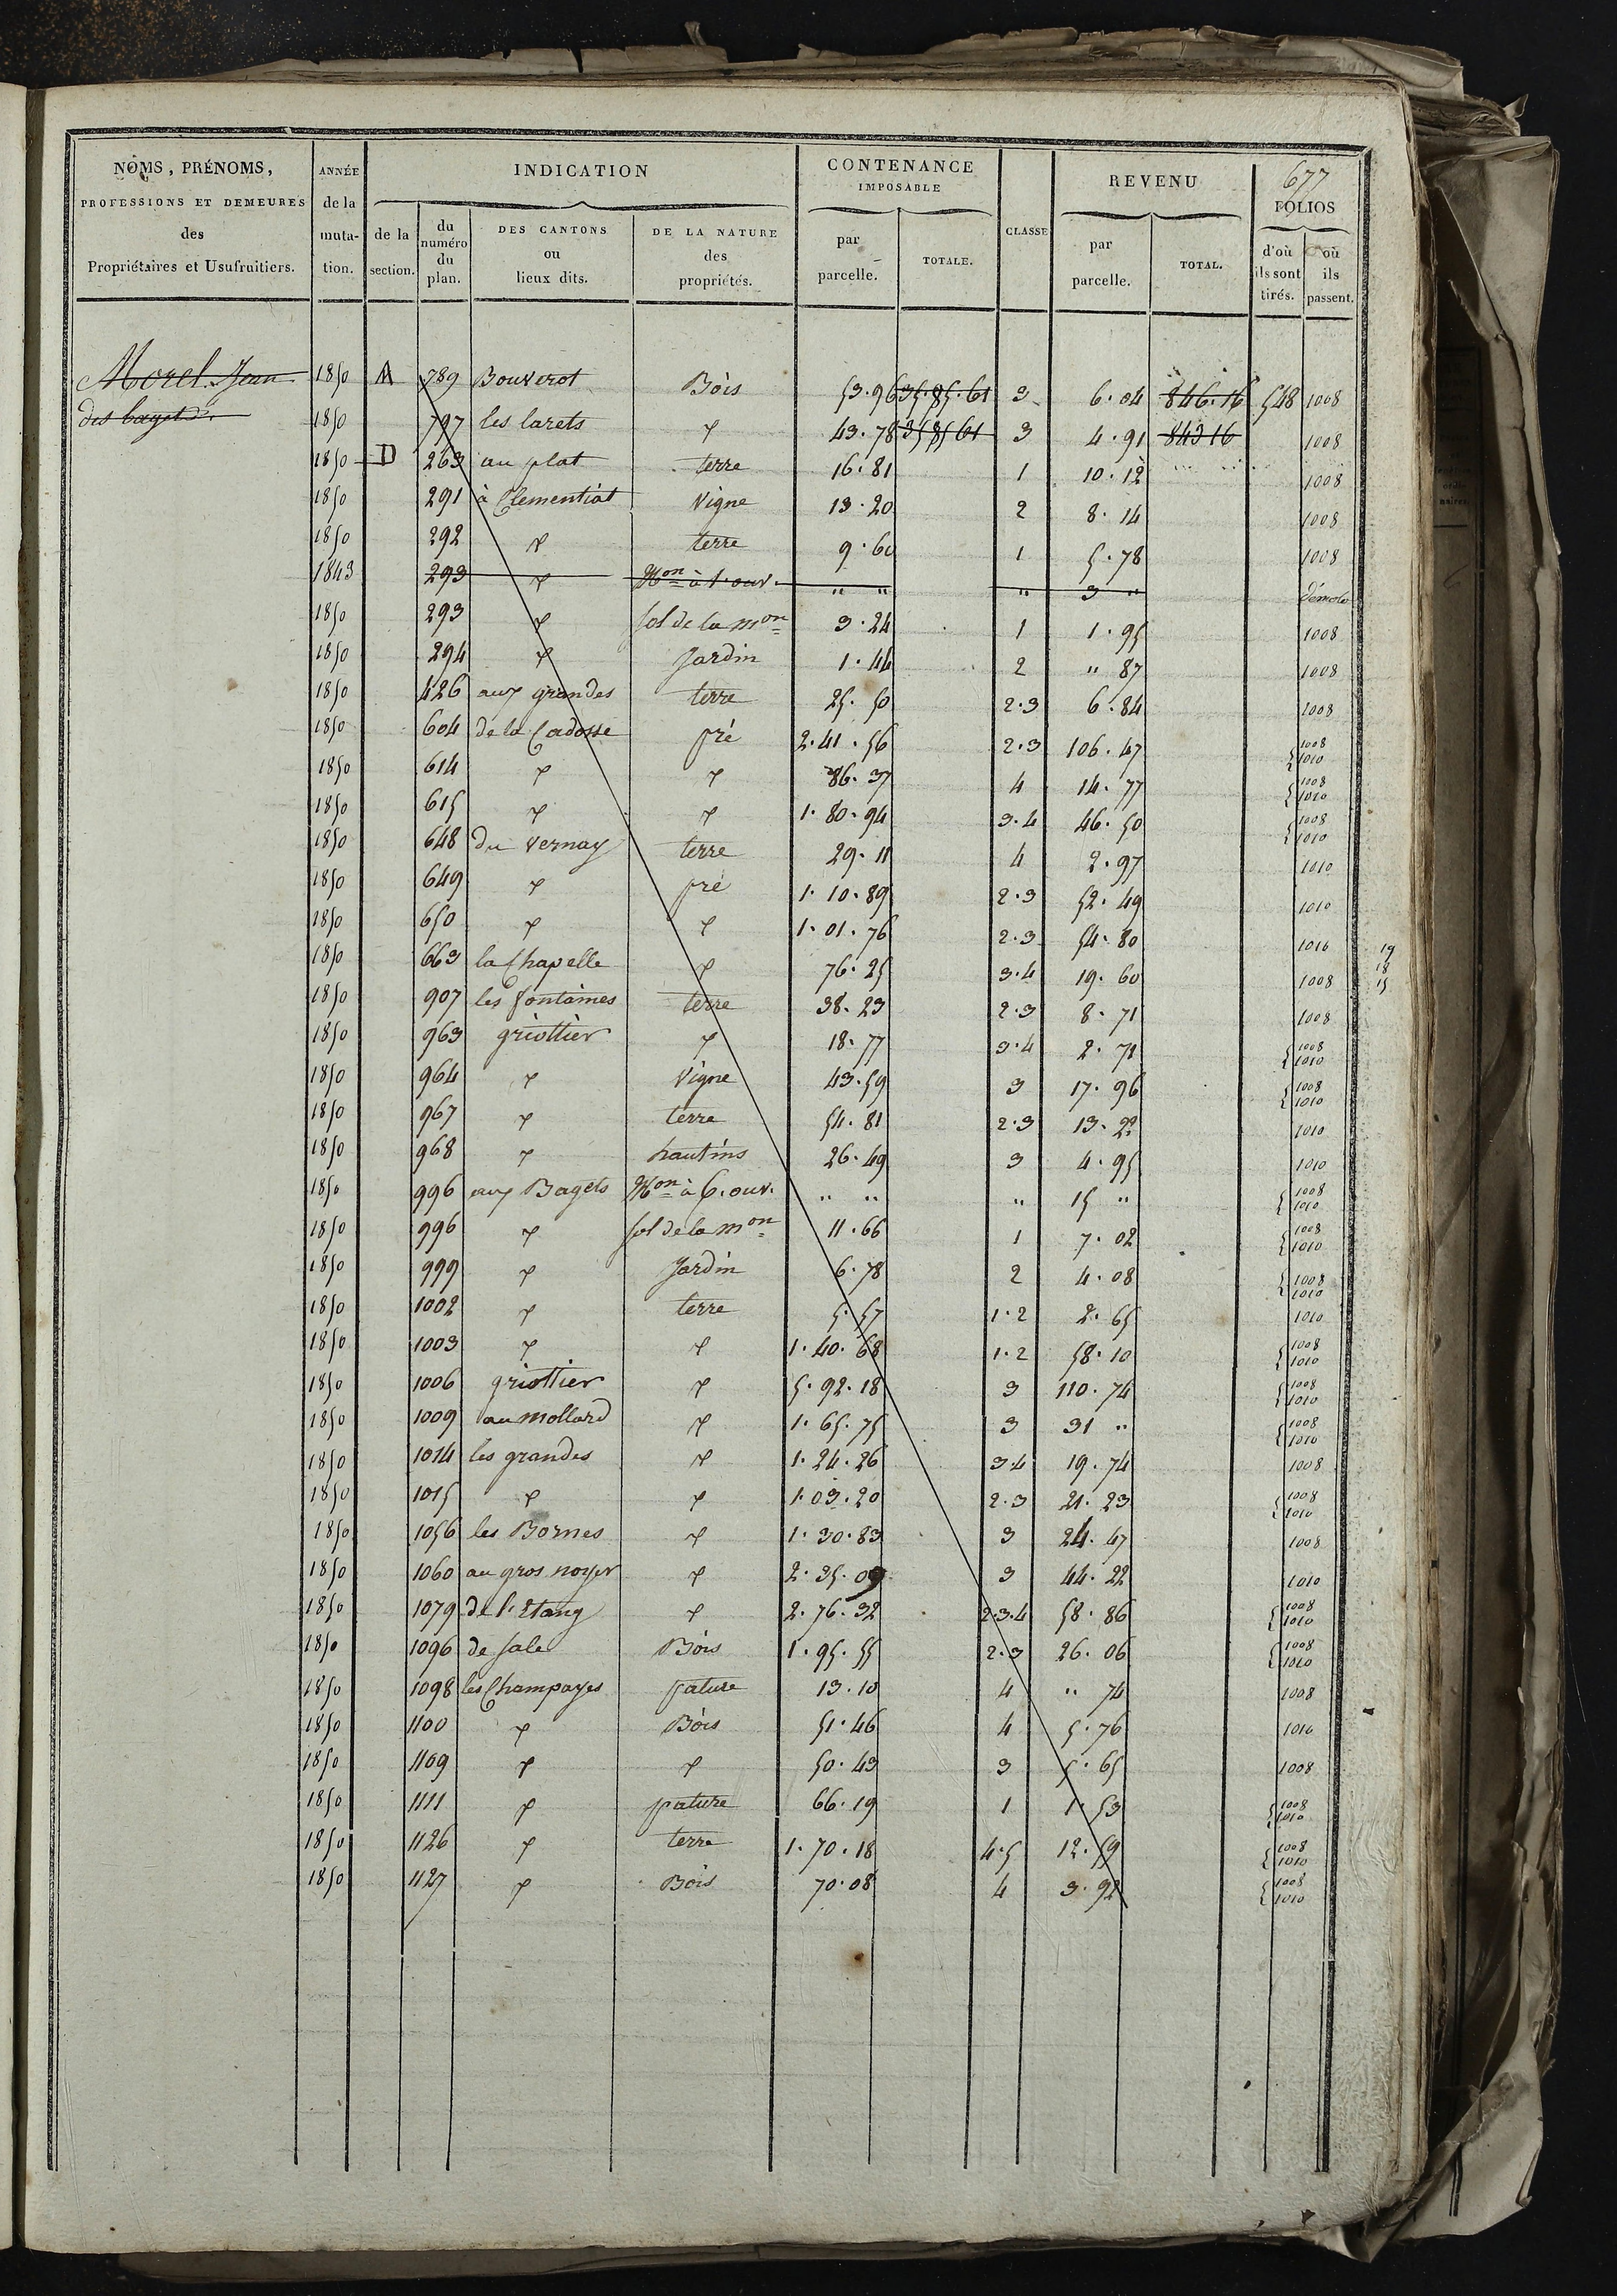 677
NOMS, PRÉNOMS, PROFESSIONS ET DEMEURES des Propriétaires et Usufruitiers. | ANNÉE de la muta-tion. | INDICATION de la section. | du numéro du plan. | DES CANTONS ou lieux dits. | DE LA NATURE des propriétés. | CONTENANCE IMPOSABLE par parcelle. | TOTALE. | CLASSE | REVENU par parcelle. | TOTAL. | FOLIOS d'où ils sont tirés. | où ils passent.
Morel Jean 1850 A 789 Bouverot Bois 53.96 35.85.61 3 6.04 846.16 548 1008
des bagets 1850 797 les larets 〃 43.78 35 85 61 3 4.91 843 16 1008
1850 D 263 au plat terre 16.81 1 10.12 1008
1850 291 à Clementiat Vigne 13.20 2 8.14 1008
1850 292 〃 terre 9.60 1 5.78 1008
1843 293 〃 Mon à 1. ouv. " " " 3 " démolo
1850 293 〃 sol de la mon 3.24 1 1.95 1008
1850 294 〃 Jardin 1.44 2 " 87 1008
1850 426 aux grandes terre 25.50 2.3 6.84 1008
1850 604 de la Cadosse pré 2.41.56 2.3 106.47 1008 1010
1850 614 〃 〃 86.37 4 14.77 1008 1010
1850 615 〃 〃 1.80.94 3.4 46.50 1008 1010
1850 648 du Vernay terre 29.11 4 2.97 1010
1850 649 〃 pré 1.10.89 2.3 52.49 1010
1850 650 〃 〃 1.01.76 2.3 54.80 1010
1850 663 la Chapelle 〃 76.25 3.4 19.60 1008
19
18
15
1850 907 les fontaines terre 38.23 2.3 8.71 1008
1850 963 griottier 〃 18.77 3.4 2.71 1008 1010
1850 964 〃 Vigne 43.59 3 17.96 1008 1010
1850 967 〃 terre 54.81 2.3 13.22 1010
1850 968 〃 hautins 26.49 3 4.95 1010
1850 996 aux Bagets Mon à 6. ouv. " " " 15 " 1008 1010
1850 996 〃 sol de la mon 11.66 1 7.02 1008 1010
1850 999 〃 Jardin 6.78 2 4.08 1008 1010
1850 1002 〃 terre 5.57 1.2 2.65 1010
1850 1003 〃 〃 1.40.68 1.2 58.10 1008 1010
1850 1006 griottier 〃 5.92.18 3 110.74 1008 1010
1850 1009 au mollard 〃 1.65.75 3 31 " 1008 1010
1850 1014 les grandes 〃 1.24.26 3.4 19.74 1008
1850 1015 〃 〃 1.03.20 2.3 21.23 1008 1010
1850 1056 les Bornes 〃 1.30.83 3 24.47 1008
1850 1060 au gros noyer 〃 2.35.09 3 44.22 1010
1850 1079 de l'Etang 〃 2.76.32 2.3.4 58.86 1008 1010
1850 1096 de sale Bois 1.95.55 2.3 26.06 1008 1010
1850 1098 les Champayes pature 13.10 4 " 74 1008
1850 1100 〃 Bois 51.46 4 5.76 1010
1850 1109 〃 〃 50.43 3 5.65 1008
1850 1111 〃 pature 66.19 1 1.53 1008 1010
1850 1126 〃 terre 1.70.18 4.5 12.59 1008 1010
1850 1127 〃 Bois 70.08 4 3.92 1008 1010